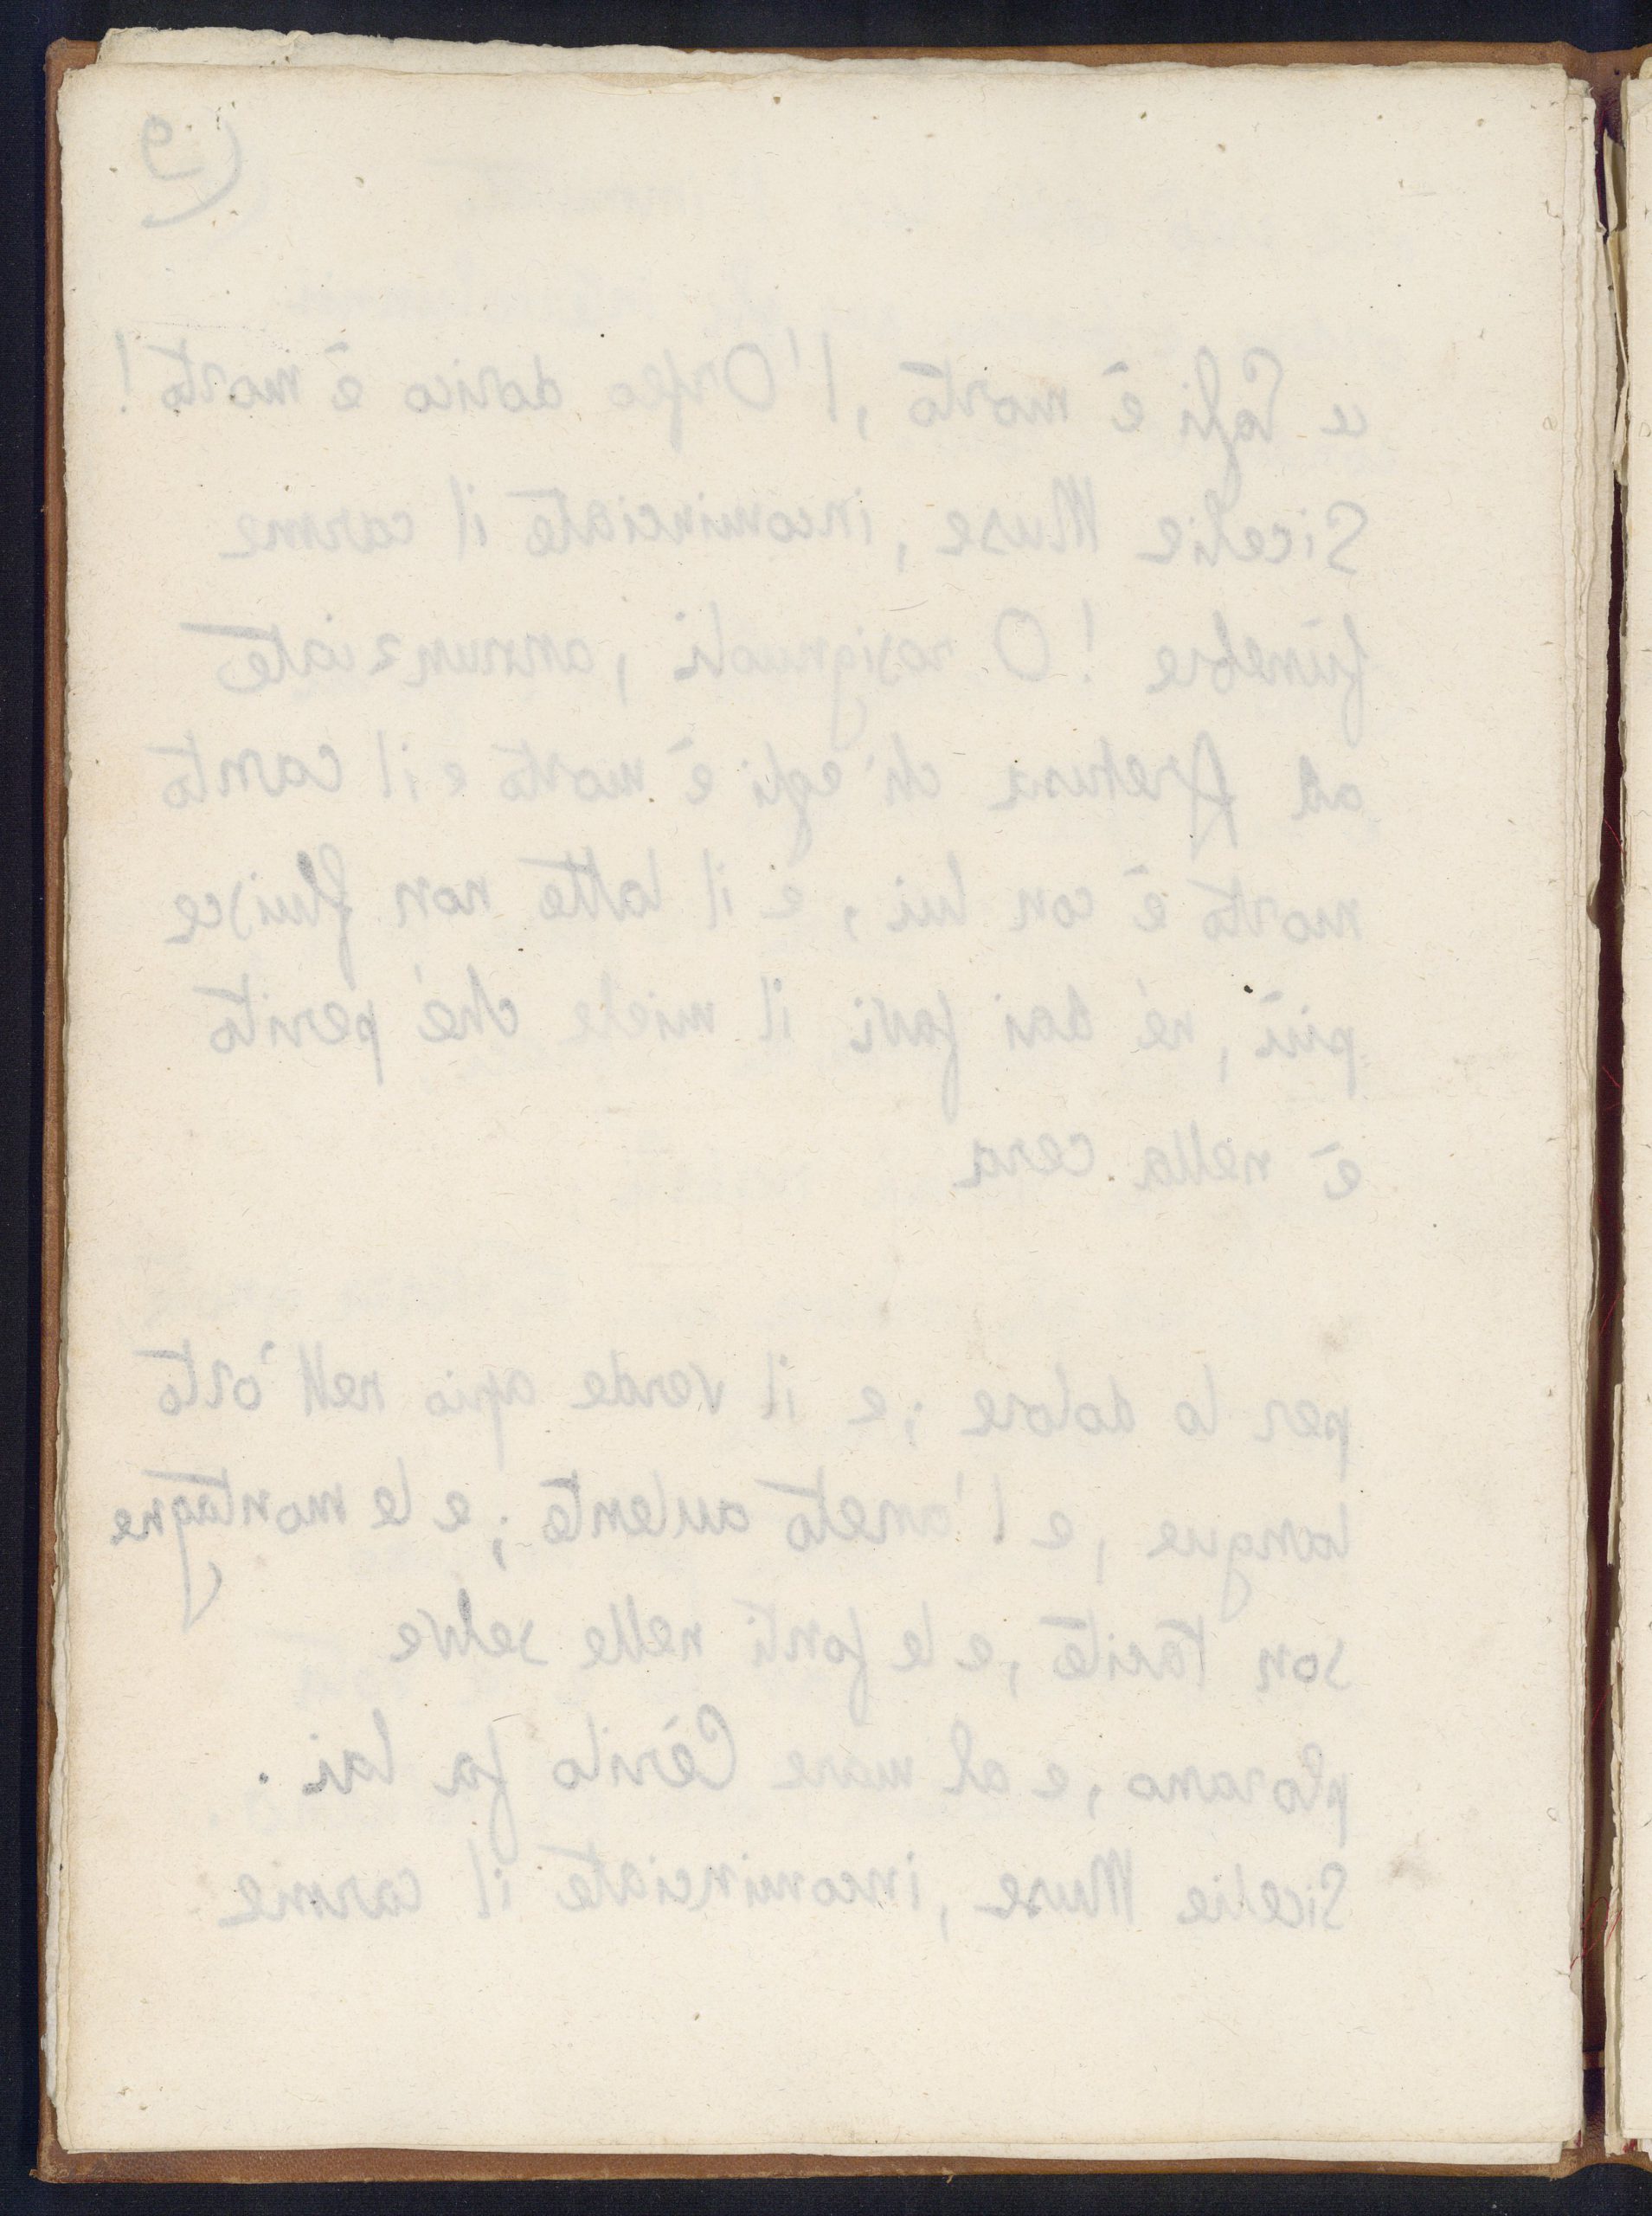 (9
« Egli è morto, l'Orfeo dorico è morto!
Sicelie Muse, incominciate il carme
fùnebre! O rosignuoli, annunziate
ad Arethusa ch'egli è morto e il canto
morto è con lui, e il latte non fluisce
più, né dai favi il miele ché perito
è nella cera
per lo dolore; e il verde apio nell'orto
langue, e l'aneto aulente; e le montagne
son tacite, e le fonti nelle selve
plorano, e al mare Cèrilo fa lai.
Sicelie Muse, incominciate il carme